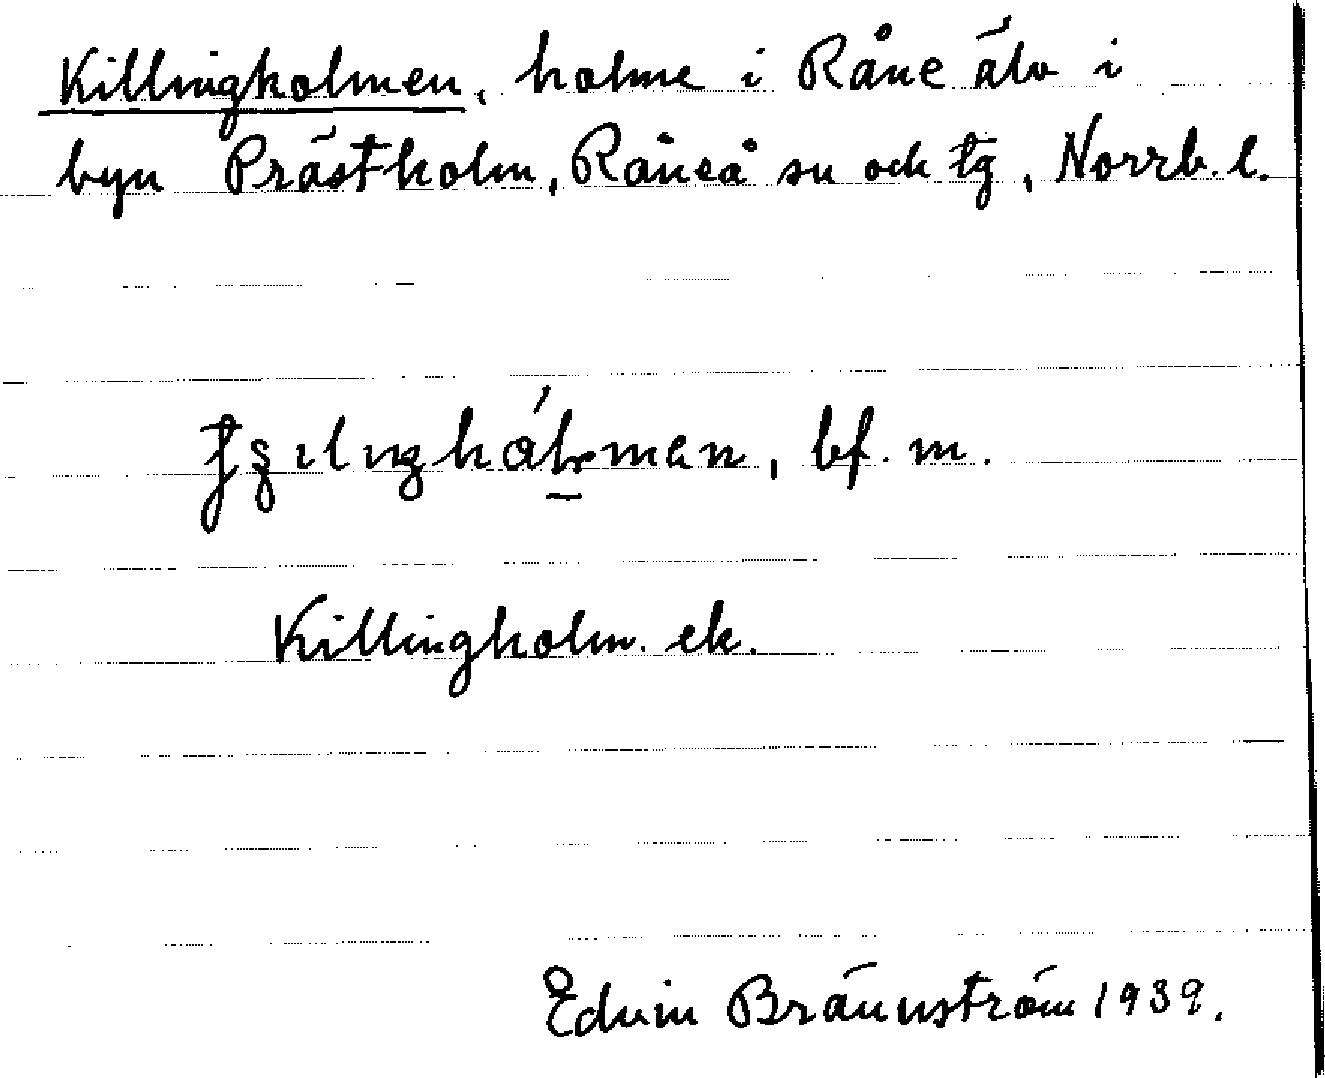 Killingholmen, holme i Råne älv i
byn Prästholm, Råneå sn och tg, Norrb. l.
bf. m.
Killingholm. ek.
Edvin Brännström 1939.